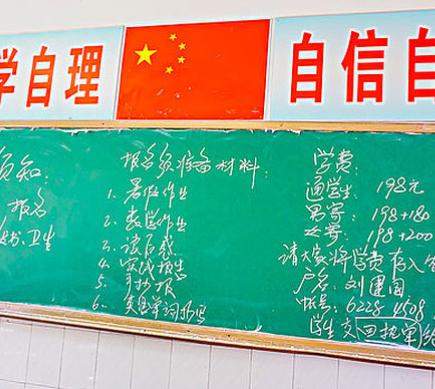 学自理
自信自
须知:
报名
卫生
报名须准备材料:
1. 暑假作业
2. 数学作业
3. 读后感
4. 实践报告
5. 手抄报
6. 英语单词抄写
学费:
通学生: 198元
男寄: 198+180
女寄: 198+200
请大家将学费存入
户名: 刘建国
帐号: 6228 4508
学生交回执单